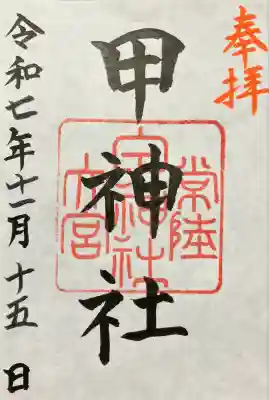 奉拝
甲神社
常陸
大宮
令和七年十一月十五日